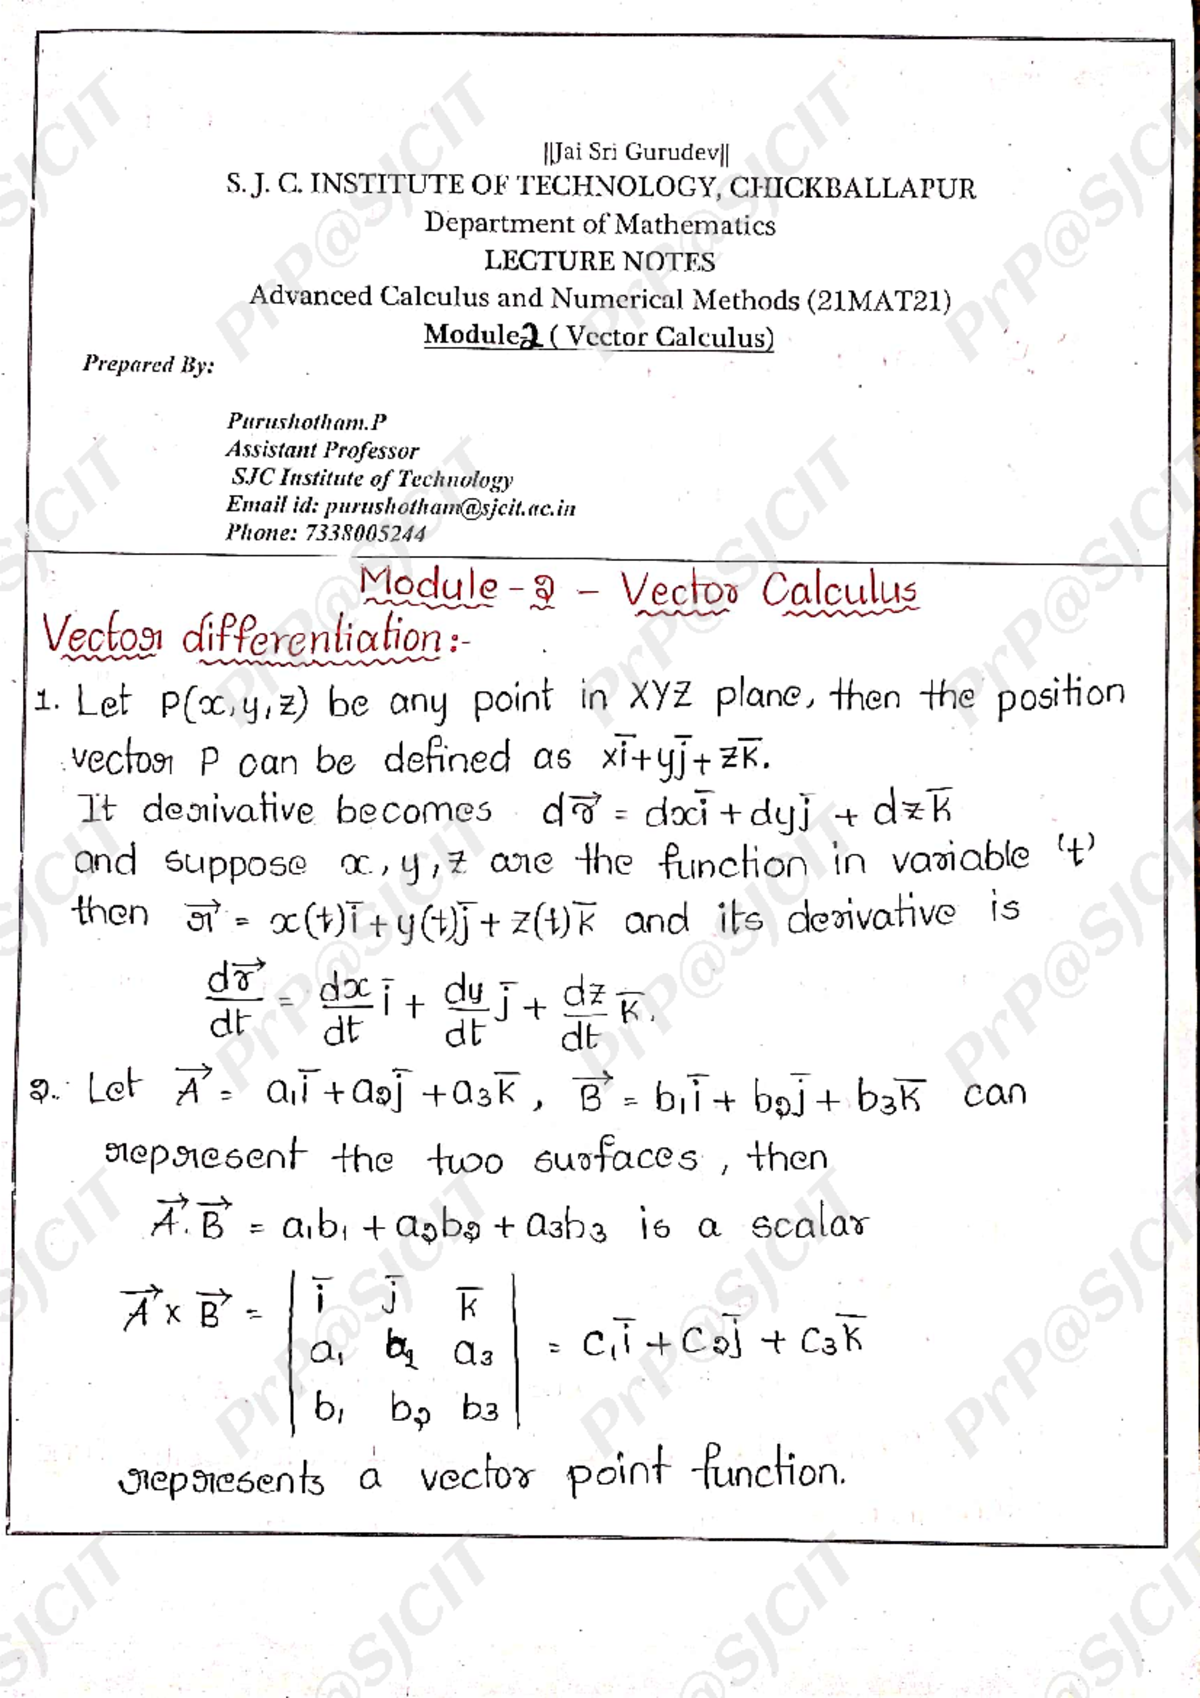 ||Jai Sri Gurudev||
S. J. C. INSTITUTE OF TECHNOLOGY, CHICKBALLAPUR
Department of Mathematics
LECTURE NOTES
Advanced Calculus and Numerical Methods (21MAT21)
Module2 ( Vector Calculus)
Prepared By:
Purushotham.P
Assistant Professor
SJC Institute of Technology
Email id: purushotham@sjcit.ac.in
Phone: 7338005244
Module - 2 - Vector Calculus
Vector differentiation:-
1. Let P(x,y,z) be any point in XYZ plane, then the position
vector P can be defined as xi̅+yj̅+zk̅.
It derivative becomes dr⃗ = dxi̅ + dyj̅ + dzk̅
and suppose x, y, z are the function in variable 't'
then r⃗ = x(t)i̅ + y(t)j̅ + z(t)k̅ and its derivative is
dr⃗/dt = dx/dt i̅ + dy/dt j̅ + dz/dt k̅.
2. Let A⃗ = a₁i̅ + a₂j̅ + a₃k̅, B⃗ = b₁i̅ + b₂j̅ + b₃k̅ can
represent the two surfaces, then
A⃗.B⃗ = a₁b₁ + a₂b₂ + a₃b₃ is a scalar
A⃗ x B⃗ = | i̅ j̅ k̅ |
| a₁ a₂ a₃ | = c₁i̅ + c₂j̅ + c₃k̅
| b₁ b₂ b₃ |
represents a vector point function.
PrP@SJCIT